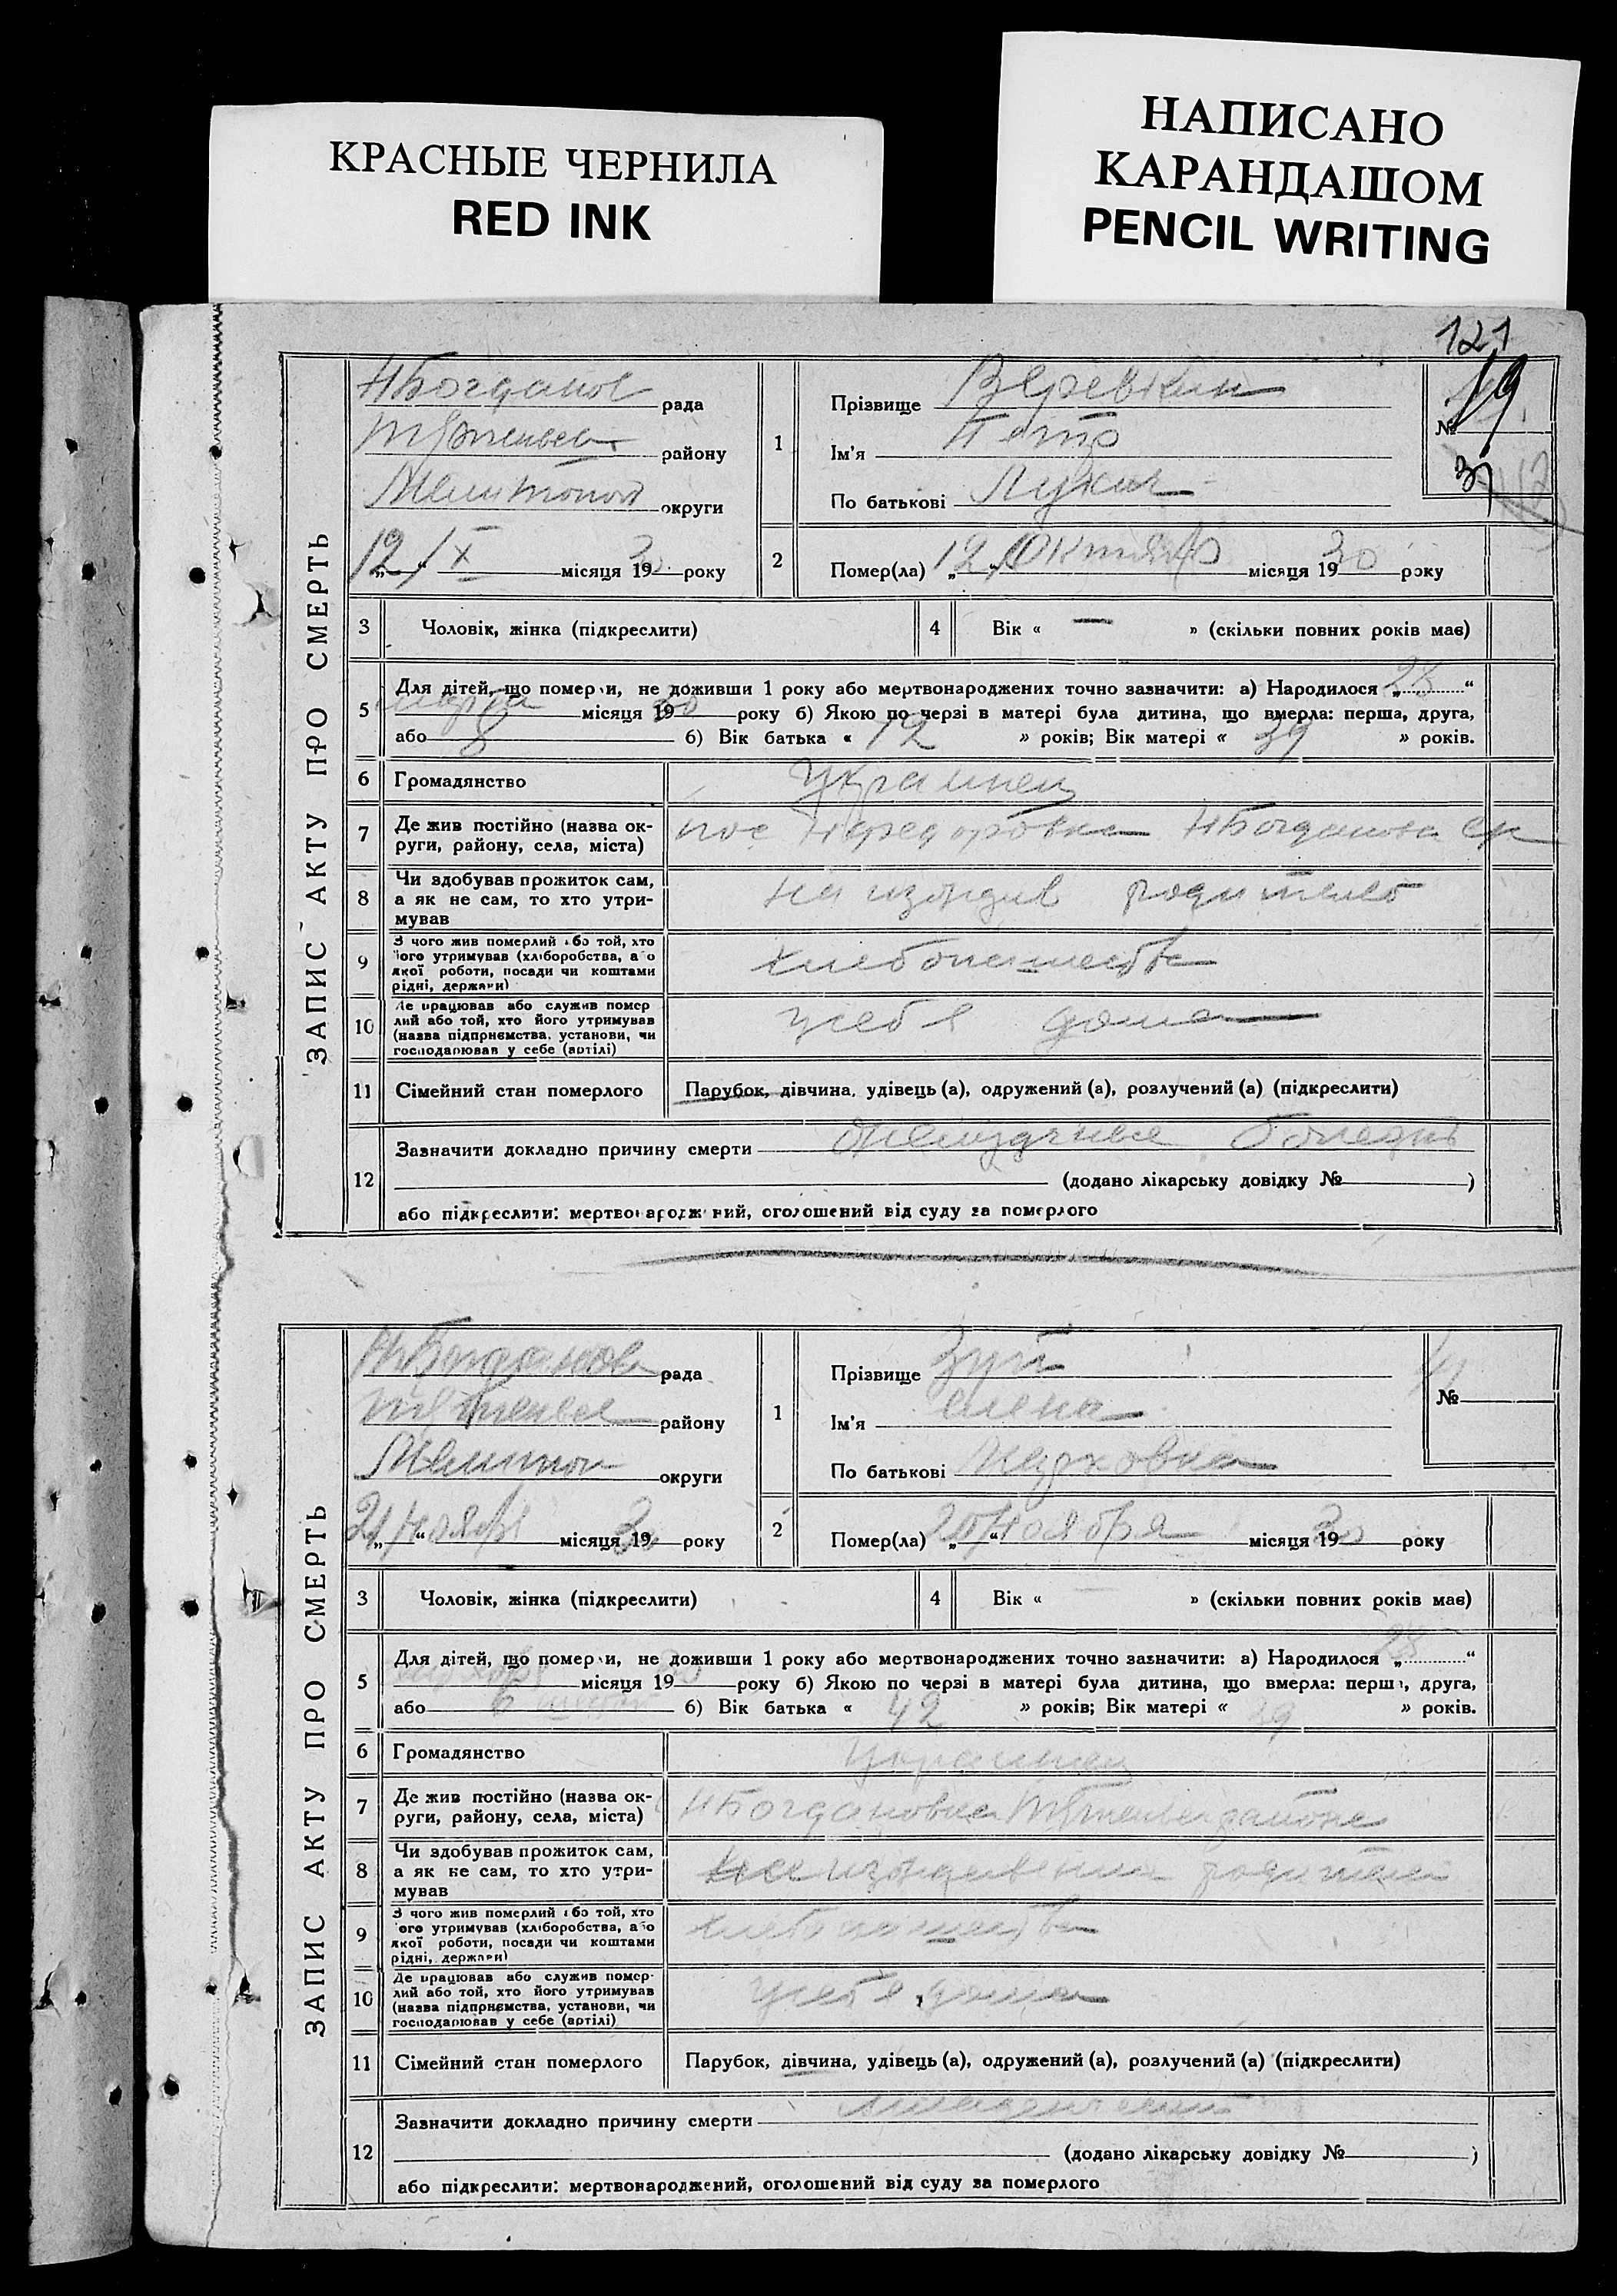 КРАСНЫЕ ЧЕРНИЛА
RED INK
НАПИСАНО
КАРАНДАШОМ
PENCIL WRITING
121
ЗАПИС АКТУ ПРО СМЕРТЬ
НБогданов рада
району
Мелитопол округи
12/X місяця 1930 року
1
Прізвище Веревкин
Ім'я Петро
По батькові Лукич
№ 19
2
Помер(ла) „12" Октября місяця 1930 року
3 Чоловік, жінка (підкреслити)
4 Вік « — » (скільки повних років має)
5 Для дітей, що померли, не доживши 1 року або мертвонароджених точно зазначити: а) Народилося „28"
марта місяця 1930 року б) Якою по черзі в матері була дитина, що вмерла: перша, друга,
або 8 б) Вік батька « » років; Вік матері « 39 » років.
6 Громадянство Украинец
7 Де жив постійно (назва округи, району, села, міста) пос НБогдановка
8 Чи здобував прожиток сам, а як не сам, то хто утримував на иждив родителей
9 З чого жив померлий або той, хто його утримував (хліборобства, або якої роботи, посади чи коштами рідні, держави) хлебопашества
10 Де працював або служив померлий або той, хто його утримував (назва підприємства, установи, чи господарював у себе (артілі) у себя дома
11 Сімейний стан померлого Парубок, дівчина, удівець (а), одружений (а), розлучений (а) (підкреслити)
12 Зазначити докладно причину смерти болезнь
(додано лікарську довідку № )
або підкреслити: мертвонароджений, оголошений від суду за померлого
ЗАПИС АКТУ ПРО СМЕРТЬ
НБогданов рада
району
Мелитоп округи
21/ноября місяця 1930 року
1
Прізвище Зуй
Ім'я Елена
По батькові
№
2
Помер(ла) „20" ноября місяця 1930 року
3 Чоловік, жінка (підкреслити)
4 Вік « » (скільки повних років має)
5 Для дітей, що померли, не доживши 1 року або мертвонароджених точно зазначити: а) Народилося „28"
місяця 1930 року б) Якою по черзі в матері була дитина, що вмерла: перша, друга,
або 6 б) Вік батька « 42 » років; Вік матері « 39 » років.
6 Громадянство Украинец
7 Де жив постійно (назва округи, району, села, міста) НБогдановка района
8 Чи здобував прожиток сам, а як не сам, то хто утримував на иждивении родителей
9 З чого жив померлий або той, хто його утримував (хліборобства, або якої роботи, посади чи коштами рідні, держави) хлебопашества
10 Де працював або служив померлий або той, хто його утримував (назва підприємства, установи, чи господарював у себе (артілі) у себя дома
11 Сімейний стан померлого Парубок, дівчина, удівець (а), одружений (а), розлучений (а) (підкреслити)
12 Зазначити докладно причину смерти
(додано лікарську довідку № )
або підкреслити: мертвонароджений, оголошений від суду за померлого